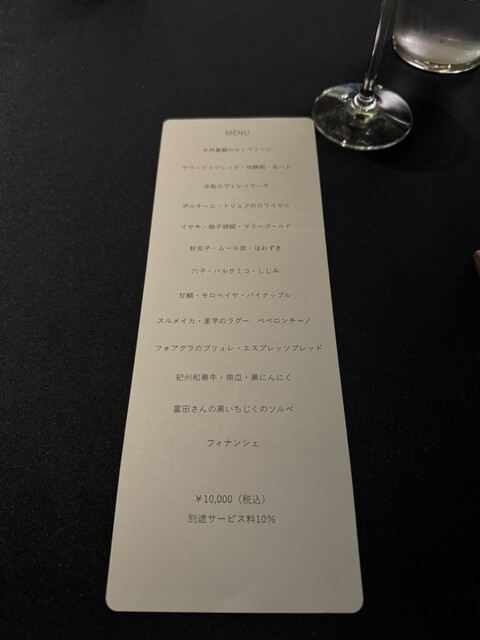 MENU
サワードゥブレッド・
洋梨のヴィシソワーズ
ポルチーニ・トリュフのロワイヤル
イサキ・柚子胡椒・マリーゴールド
秋茄子・ムール貝・ほおずき
穴子・バルサミコ・しじみ
甘鯛・モロヘイヤ・パイナップル
スルメイカ・里芋のラグー ペペロンチーノ
フォアグラのブリュレ・エスプレッソブレッド
紀州和華牛・南瓜・黒にんにく
富田さんの黒いちじくのソルベ
フィナンシェ
￥10,000（税込）
別途サービス料10%